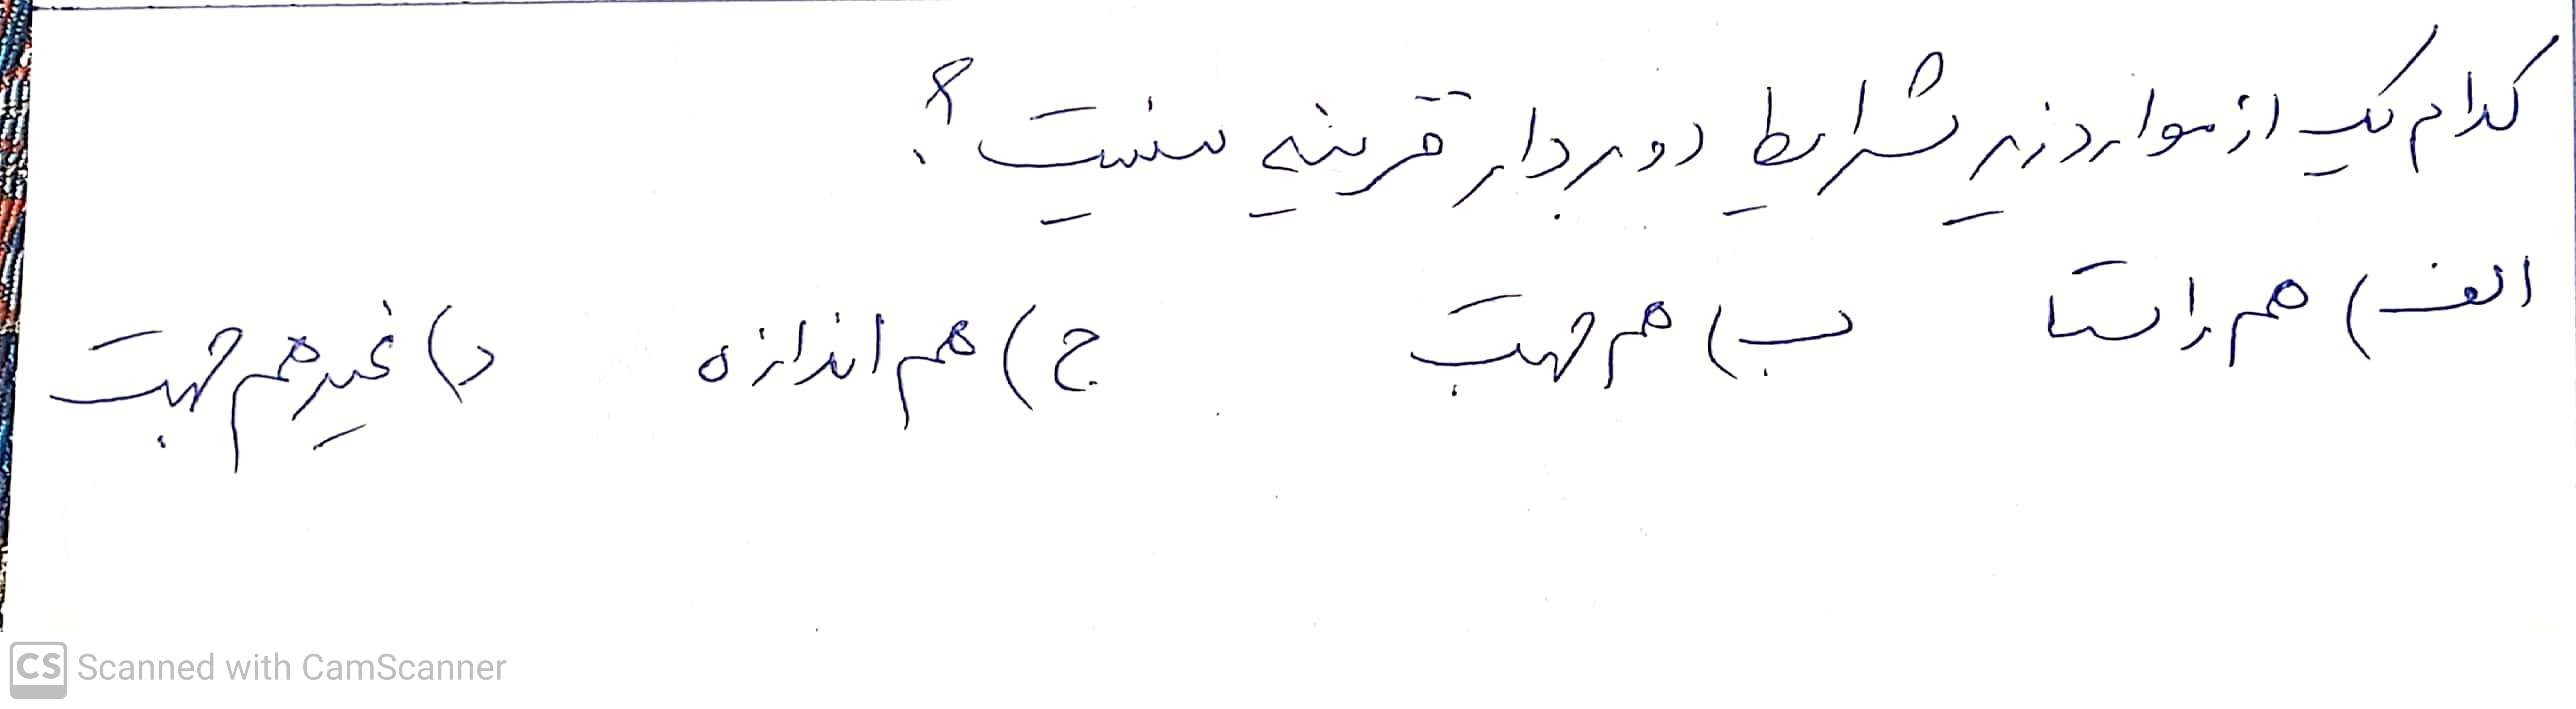 کدام یک از موارد زیر شرایط دو بردار قرینه نیست؟
الف) هم راستا ب) هم جهت ج) هم اندازه د) غیر هم جهت
CS Scanned with CamScanner